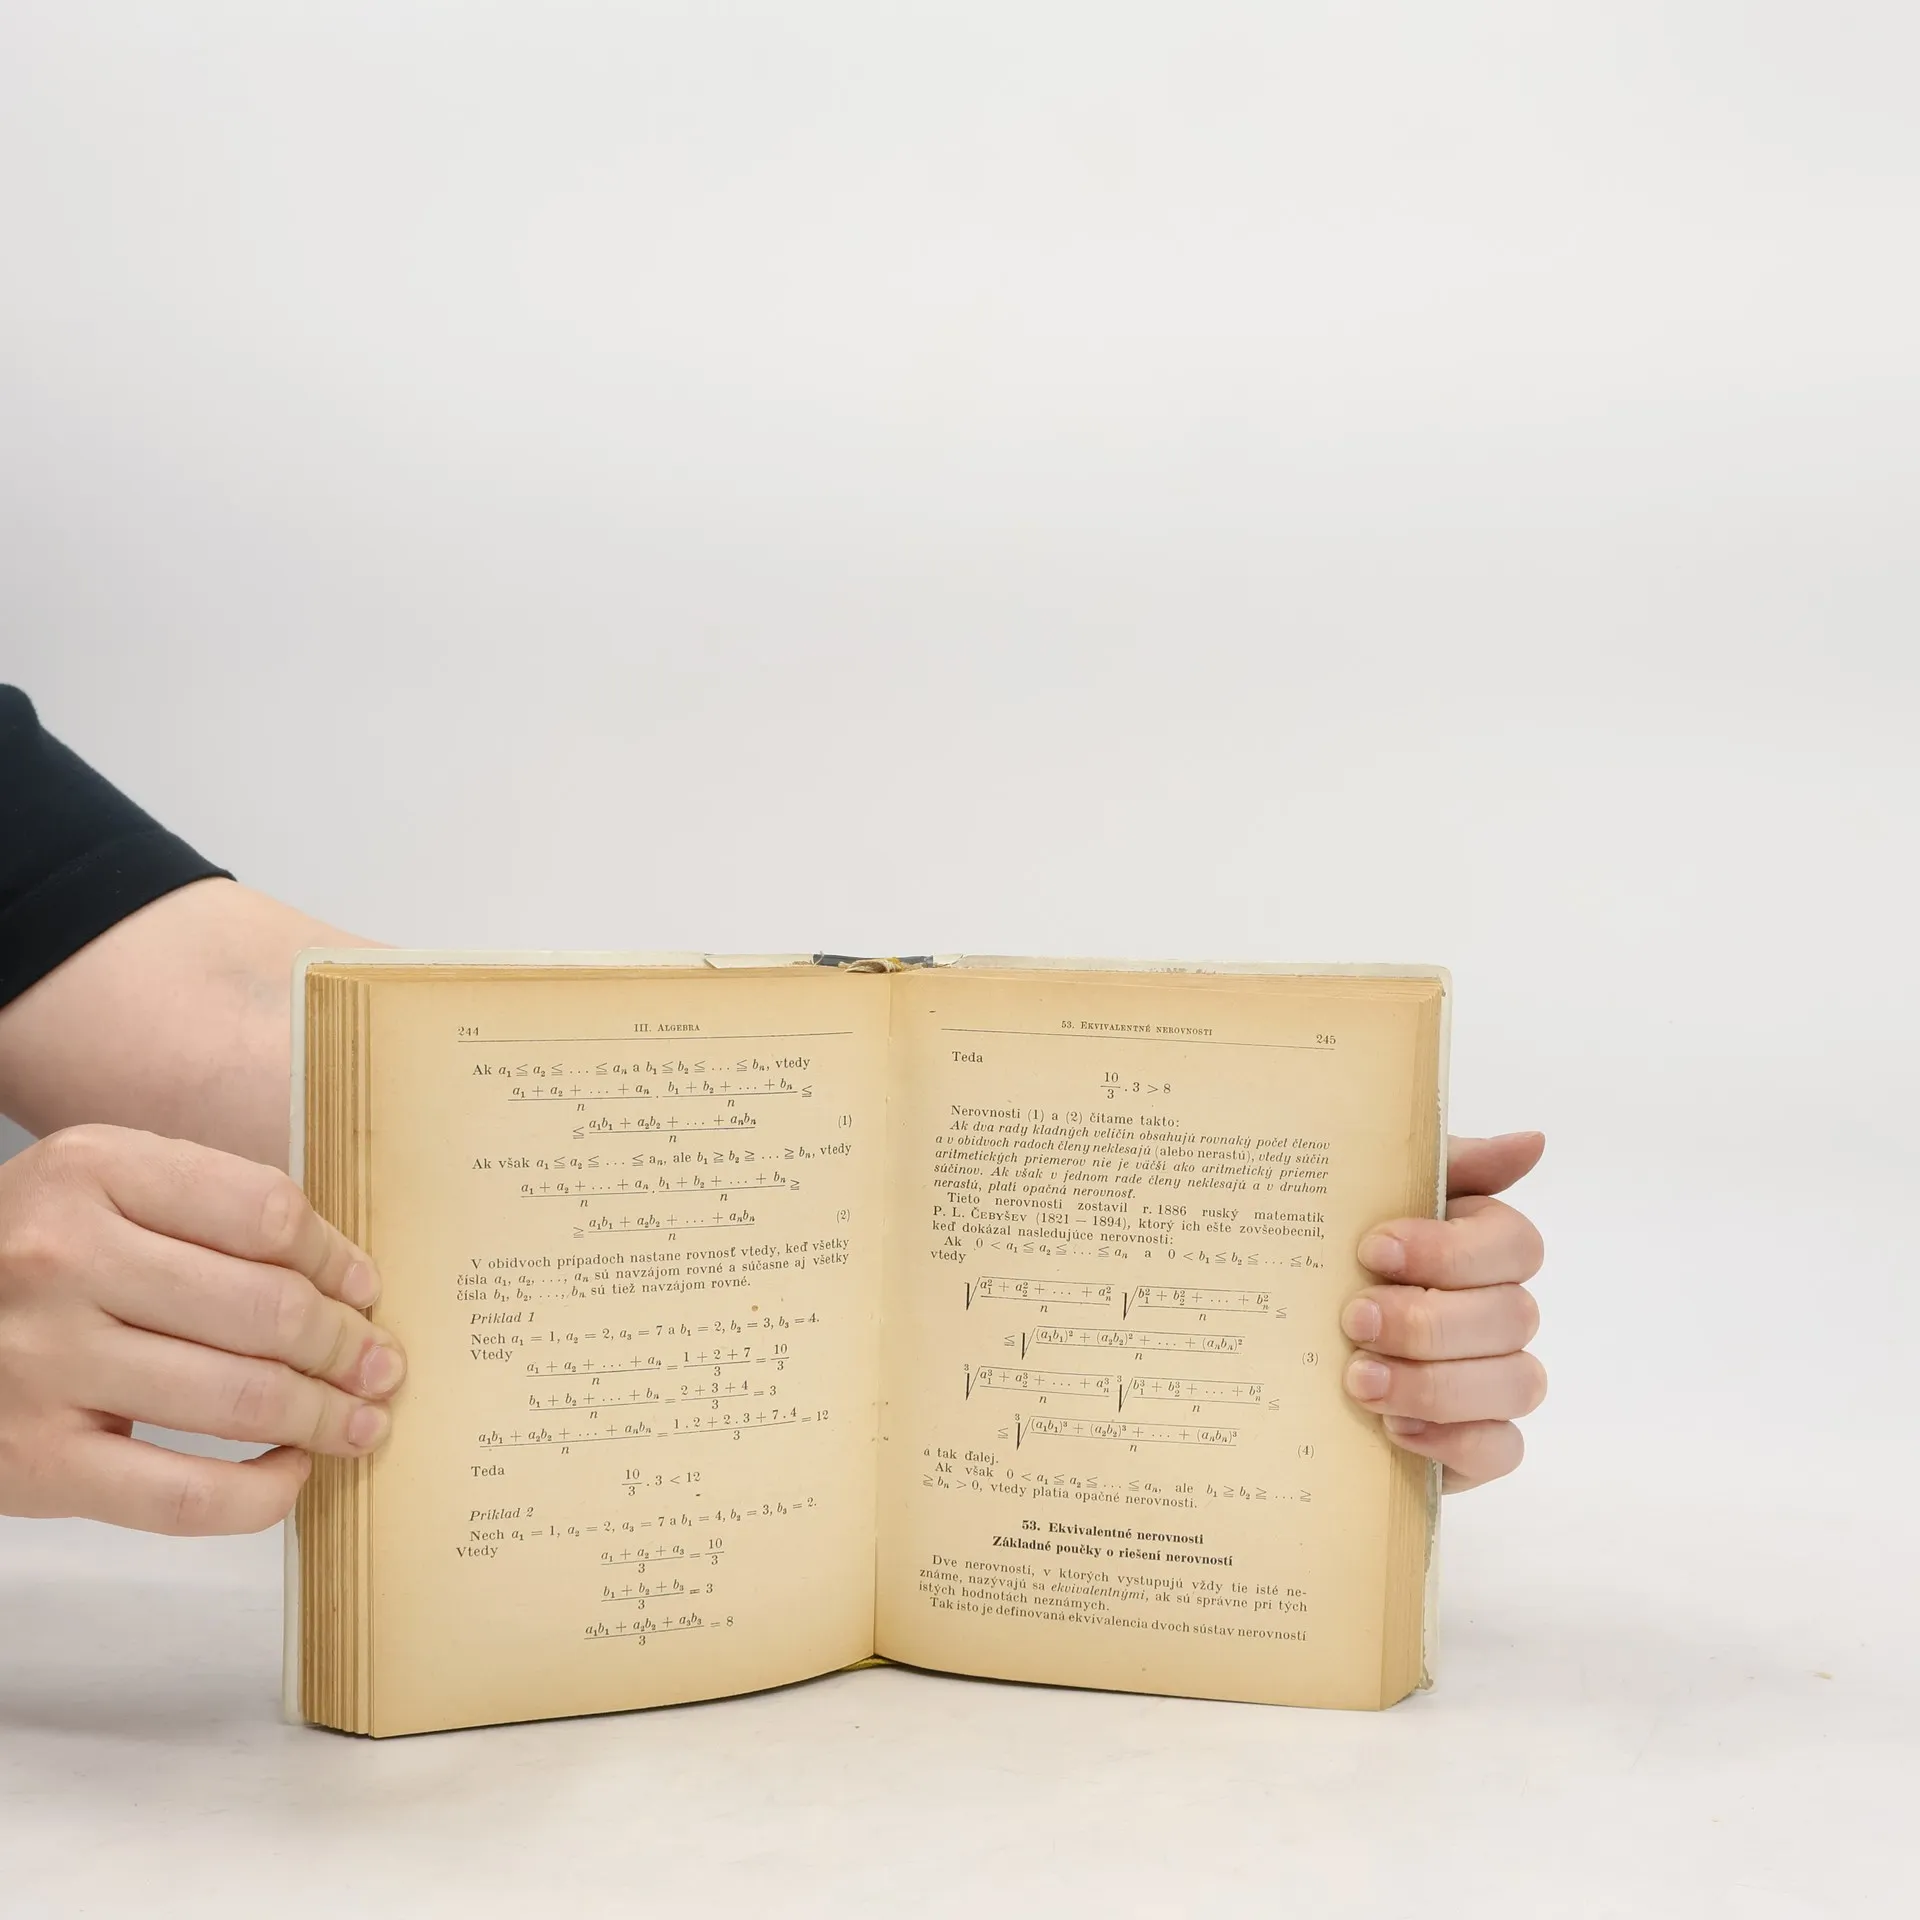 244 III. Algebra
Ak a₁ ≦ a₂ ≦ ... ≦ aₙ a b₁ ≦ b₂ ≦ ... ≦ bₙ, vtedy
(a₁ + a₂ + ... + aₙ)/n . (b₁ + b₂ + ... + bₙ)/n ≦
≦ (a₁b₁ + a₂b₂ + ... + aₙbₙ)/n (1)
Ak však a₁ ≦ a₂ ≦ ... ≦ aₙ, ale b₁ ≧ b₂ ≧ ... ≧ bₙ, vtedy
(a₁ + a₂ + ... + aₙ)/n . (b₁ + b₂ + ... + bₙ)/n ≧
≧ (a₁b₁ + a₂b₂ + ... + aₙbₙ)/n (2)
V obidvoch prípadoch nastane rovnosť vtedy, keď všetky
čísla a₁, a₂, ..., aₙ sú navzájom rovné a súčasne aj všetky
čísla b₁, b₂, ..., bₙ sú tiež navzájom rovné.
Príklad 1
Nech a₁ = 1, a₂ = 2, a₃ = 7 a b₁ = 2, b₂ = 3, b₃ = 4.
Vtedy
(a₁ + a₂ + ... + aₙ)/n = (1 + 2 + 7)/3 = 10/3
(b₁ + b₂ + ... + bₙ)/n = (2 + 3 + 4)/3 = 3
(a₁b₁ + a₂b₂ + ... + aₙbₙ)/n = (1 . 2 + 2 . 3 + 7 . 4)/3 = 12
Teda
10/3 . 3 < 12
Príklad 2
Nech a₁ = 1, a₂ = 2, a₃ = 7 a b₁ = 4, b₂ = 3, b₃ = 2.
Vtedy
(a₁ + a₂ + a₃)/3 = 10/3
(b₁ + b₂ + b₃)/3 = 3
(a₁b₁ + a₂b₂ + a₃b₃)/3 = 8
53. Ekvivalentné nerovnosti 245
Teda
10/3 . 3 > 8
Nerovnosti (1) a (2) čítame takto:
Ak dva rady kladných veličín obsahujú rovnaký počet členov
a v obidvoch radoch členy neklesajú (alebo nerastú), vtedy súčin
aritmetických priemerov nie je väčší ako aritmetický priemer
súčinov. Ak však v jednom rade členy neklesajú a v druhom
nerastú, platí opačná nerovnosť.
Tieto nerovnosti zostavil r. 1886 ruský matematik
P. L. Čebyšev (1821 — 1894), ktorý ich ešte zovšeobecnil,
keď dokázal nasledujúce nerovnosti:
Ak 0 < a₁ ≦ a₂ ≦ ... ≦ aₙ a 0 < b₁ ≦ b₂ ≦ ... ≦ bₙ,
vtedy
√((a₁² + a₂² + ... + aₙ²)/n) √((b₁² + b₂² + ... + bₙ²)/n) ≦
≦ √(((a₁b₁)² + (a₂b₂)² + ... + (aₙbₙ)²)/n) (3)
∛((a₁³ + a₂³ + ... + aₙ³)/n) ∛((b₁³ + b₂³ + ... + bₙ³)/n) ≦
≦ ∛(((a₁b₁)³ + (a₂b₂)³ + ... + (aₙbₙ)³)/n) (4)
a tak ďalej.
Ak však 0 < a₁ ≦ a₂ ≦ ... ≦ aₙ, ale b₁ ≧ b₂ ≧ ... ≧
≧ bₙ > 0, vtedy platia opačné nerovnosti.
53. Ekvivalentné nerovnosti
Základné poučky o riešení nerovností
Dve nerovnosti, v ktorých vystupujú vždy tie isté ne-
známe, nazývajú sa ekvivalentnými, ak sú správne pri tých
istých hodnotách neznámych.
Tak isto je definovaná ekvivalencia dvoch sústav nerovností